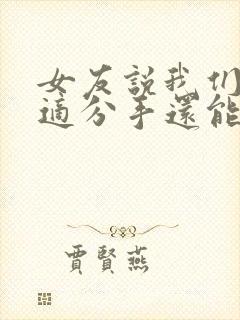 女友説我们
適分手還能
賈賢燕